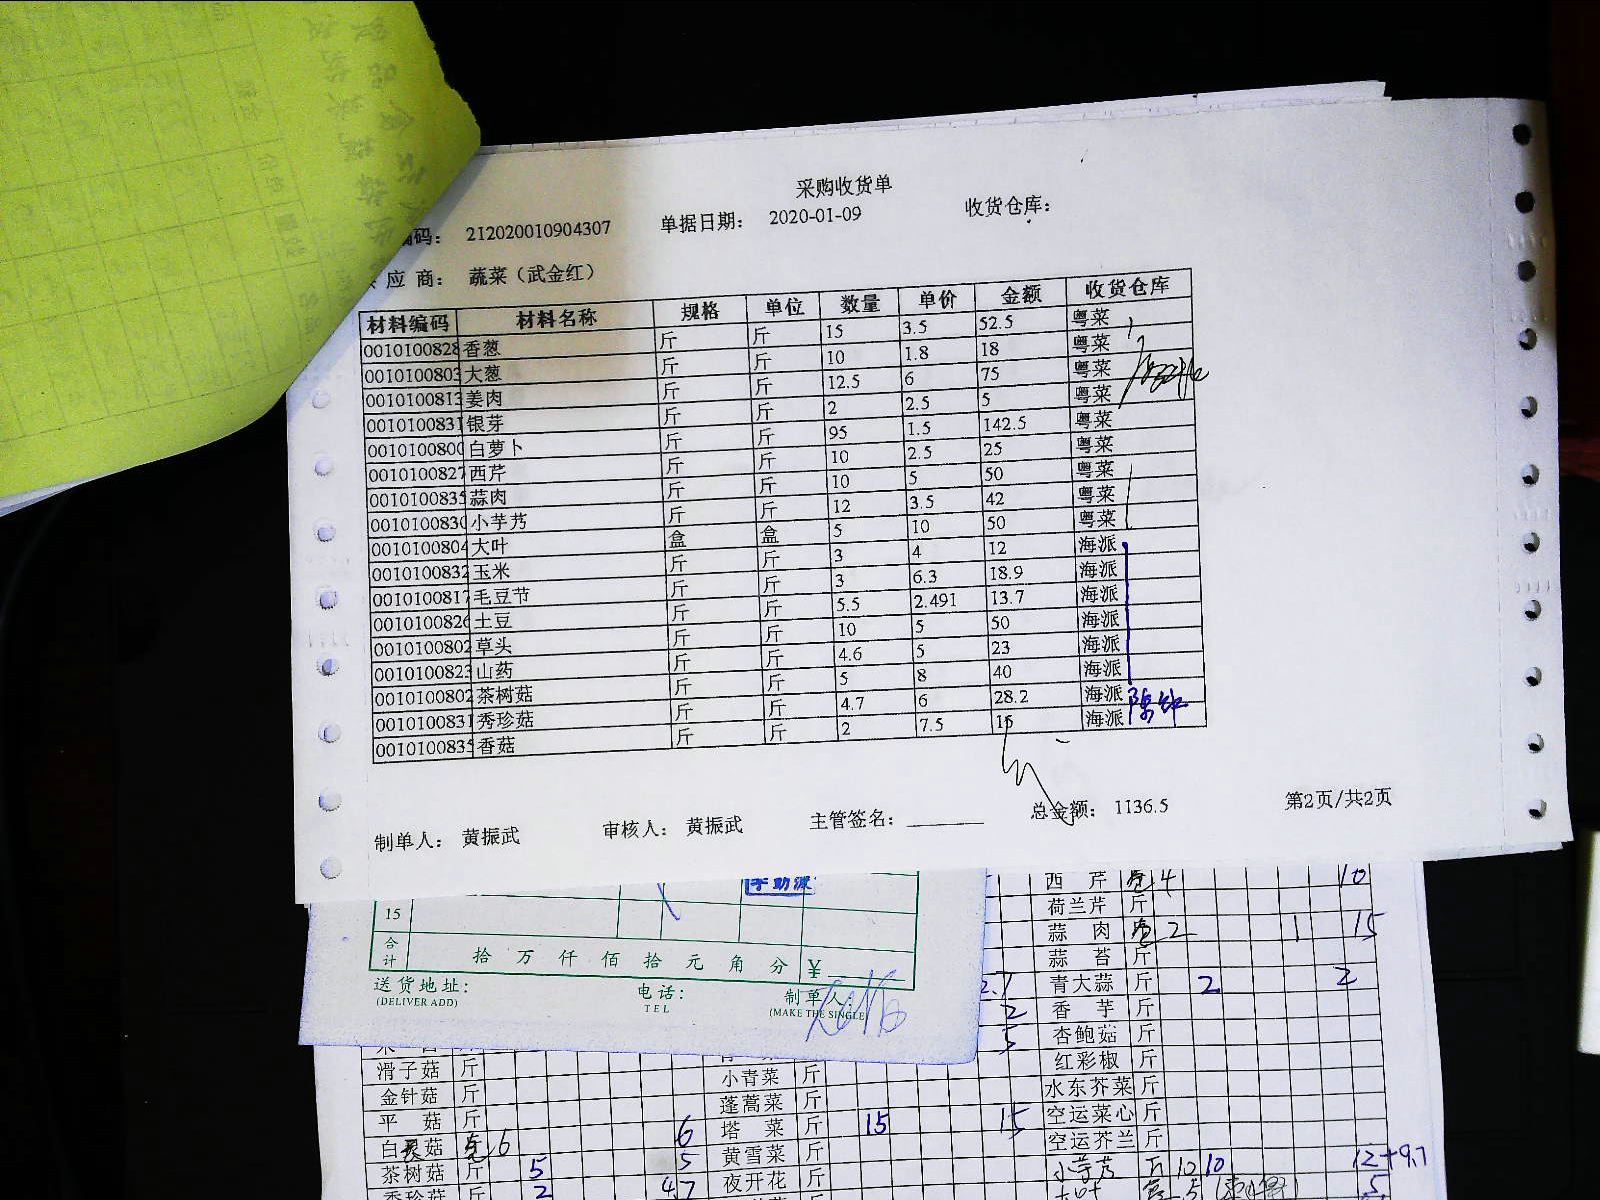 采购收货单
编码: 212020010904307 单据日期: 2020-01-09 收货仓库:
应 商: 蔬菜（武金红）
材料编码 材料名称 规格 单位 数量 单价 金额 收货仓库
0010100828 香葱 斤 斤 15 3.5 52.5 粤菜
0010100803 大葱 斤 斤 10 1.8 18 粤菜
0010100813 姜肉 斤 斤 12.5 6 75 粤菜
0010100831 银芽 斤 斤 2 2.5 5 粤菜
0010100800 白萝卜 斤 斤 95 1.5 142.5 粤菜
0010100827 西芹 斤 斤 10 2.5 25 粤菜
0010100835 蒜肉 斤 斤 10 5 50 粤菜
0010100830 小芋艿 斤 斤 12 3.5 42 粤菜
0010100804 大叶 盒 盒 5 10 50 粤菜
0010100832 玉米 斤 斤 3 4 12 海派
0010100817 毛豆节 斤 斤 3 6.3 18.9 海派
0010100826 土豆 斤 斤 5.5 2.491 13.7 海派
0010100802 草头 斤 斤 10 5 50 海派
0010100823 山药 斤 斤 4.6 5 23 海派
0010100802 茶树菇 斤 斤 5 8 40 海派
0010100831 秀珍菇 斤 斤 4.7 6 28.2 海派
001010083 香菇 斤 斤 2 7.5 15 海派
制单人: 黄振武 审核人: 黄振武 主管签名: 总金额: 1136.5 第2页/共2页
15
合计 拾 万 仟 佰 拾 元 角 分 ¥
送货地址: 电话: 制单人
(DELIVER ADD) TEL (MAKE THE SINGLE)
西 芹 4 10
荷兰芹 斤
蒜 肉 2 1 15
蒜 苔 斤
2.7 青大蒜 斤 2 2
2 香 芋 斤
5 杏鲍菇 斤
红彩椒 斤
滑子菇 斤 小青菜 斤 水东芥菜 斤
金针菇 斤 蓬蒿菜 斤 空运菜心 斤
平 菇 斤 塔 菜 斤 15 15 空运芥兰 斤
白 菇 6 6 黄雪菜 斤 小芋艿 斤 10 10 12+9.7
茶树菇 斤 5 5 夜开花 斤 5 5
秀珍菇 斤 2 4.7